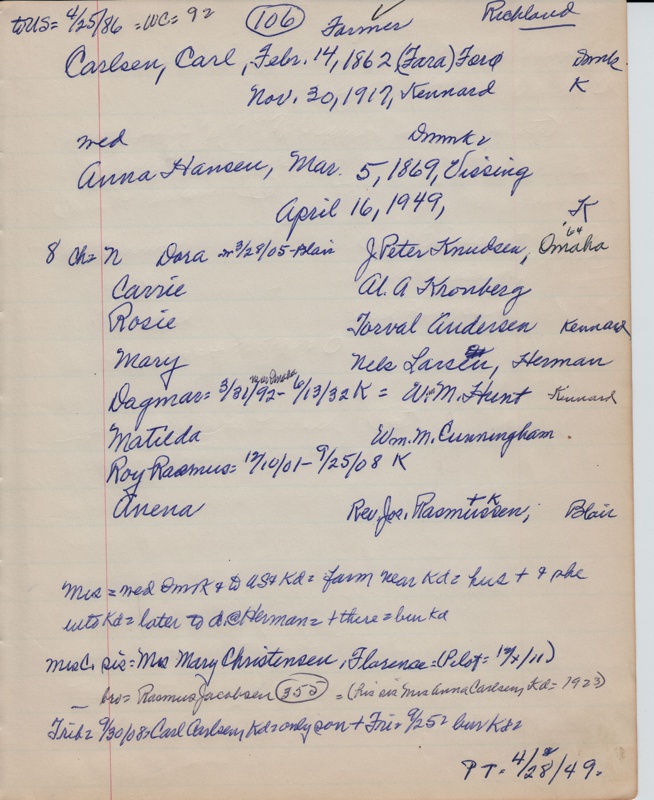 to US = 4/25/86 = WC = 92 (106) Farmer Richland
Carlsen, Carl, Febr. 14, 1862 (Fara) Forø Dnmk.
Nov. 30, 1917, Kennard K
wed Dnmk
Anna Hansen, Mar. 5, 1869, Vissing
April 16, 1949, K
8 Ch = N Dora m 3/28/05 - Blair J. Peter Knudsen, Omaha '64
Carrie Al. A Kronberg
Rosie Torval Andersen Kennard
Mary Nels Larsen, Herman
Dagmar = 3/31/92 - near Omaha 6/13/32 K = Wm. M. Hunt Kennard
Matilda Wm. M. Cunningham.
Roy Rasmus = 12/10/01 - 9/25/08 K
Anena Rev. Jos. Rasmussen, + K Blair
Mrs = wed Dmk + to US + Kd = farm near Kd = hus + + she
into Kd = later to d. @ Herman = + there = bur Kd
Mrs C. sis = Mrs Mary Christensen, Florence = (Pilot =
- bro = Rasmus Jacobsen (355) = (his sis Mrs Anna Carlsen, Kd = 1923)
Trib = 9/30/08 = Carl Carlsen, Kd = only son + Fri = 9/25 = bur Kd =
P T. 4/28/49.